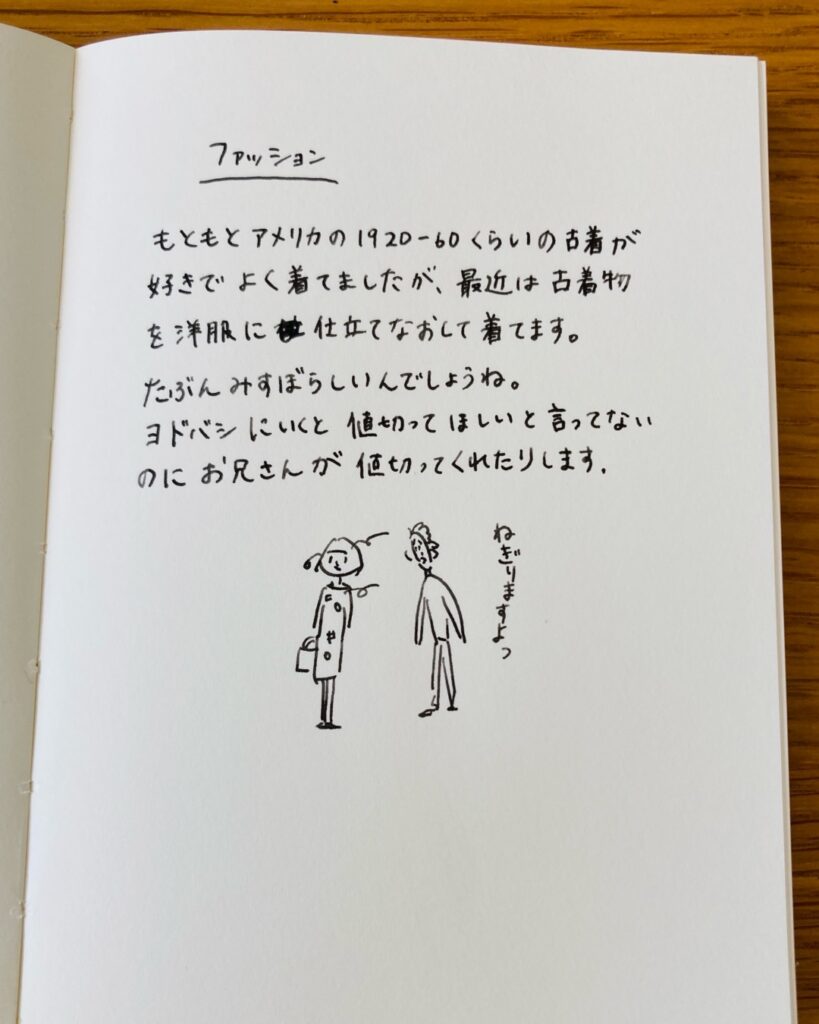 ファッション
もともとアメリカの1920-60くらいの古着が
好きでよく着てましたが、最近は古着物
を洋服に仕立てなおして着てます。
たぶんみすぼらしいんでしょうね。
ヨドバシにいくと値切ってほしいと言ってない
のにお兄さんが値切ってくれたりします.
ねぎりますよっ